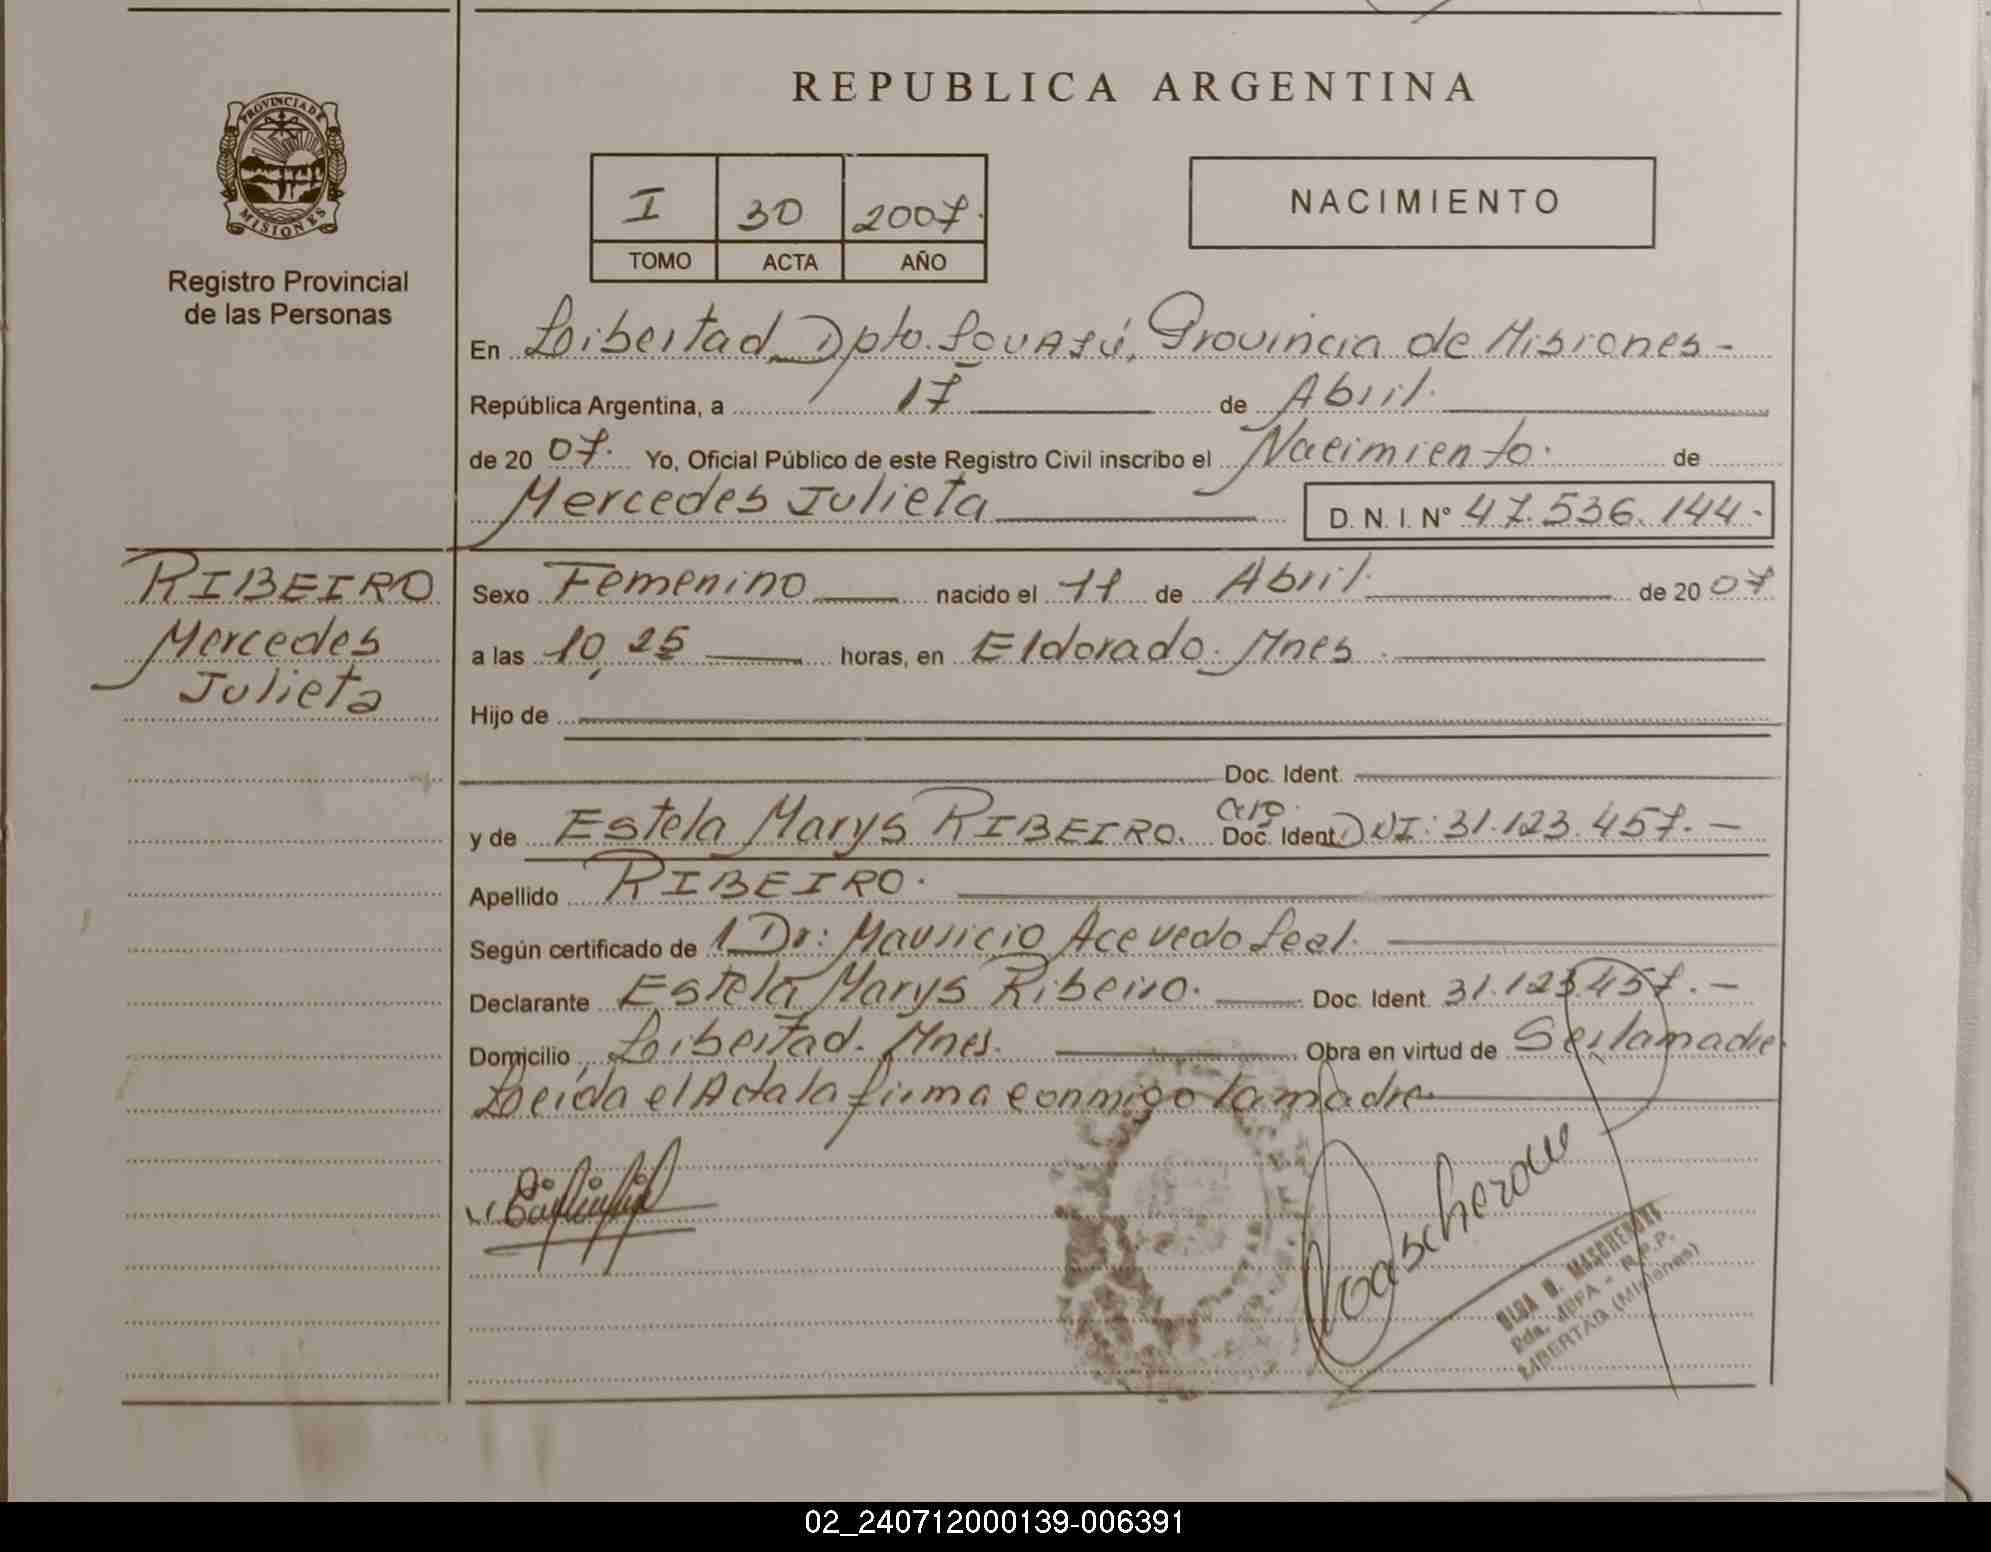 REPUBLICA ARGENTINA
PROVINCIA DE
MISIONES
Registro Provincial
de las Personas
I 30 2007.
TOMO ACTA AÑO
NACIMIENTO
En Libertad Dpto. Iguazú, Provincia de Misiones -
República Argentina, a 17 de Abril.
de 20 07. Yo, Oficial Público de este Registro Civil inscribo el Nacimiento. de
Mercedes Julieta D. N. I. N° 47.536.144.-
RIBEIRO
Mercedes
Julieta
Sexo Femenino nacido el 11 de Abril. de 20 07
a las 10,25 horas, en Eldorado. Mnes.
Hijo de
Doc. Ident.
y de Estela Marys RIBEIRO. Doc. Ident. DNI: 31.123.457.-
Apellido RIBEIRO.
Según certificado de Dr: Mauricio Acevedo Leal.
Declarante Estela Marys Ribeiro. Doc. Ident. 31.123.457.-
Domicilio Libertad. Mnes. Obra en virtud de Ser la madre
Leida el Acta la firma conmigo la madre.
OLGA MASCHERONI
Pda. - R.P.P.
LIBERTAD (Misiones)
02_240712000139-006391